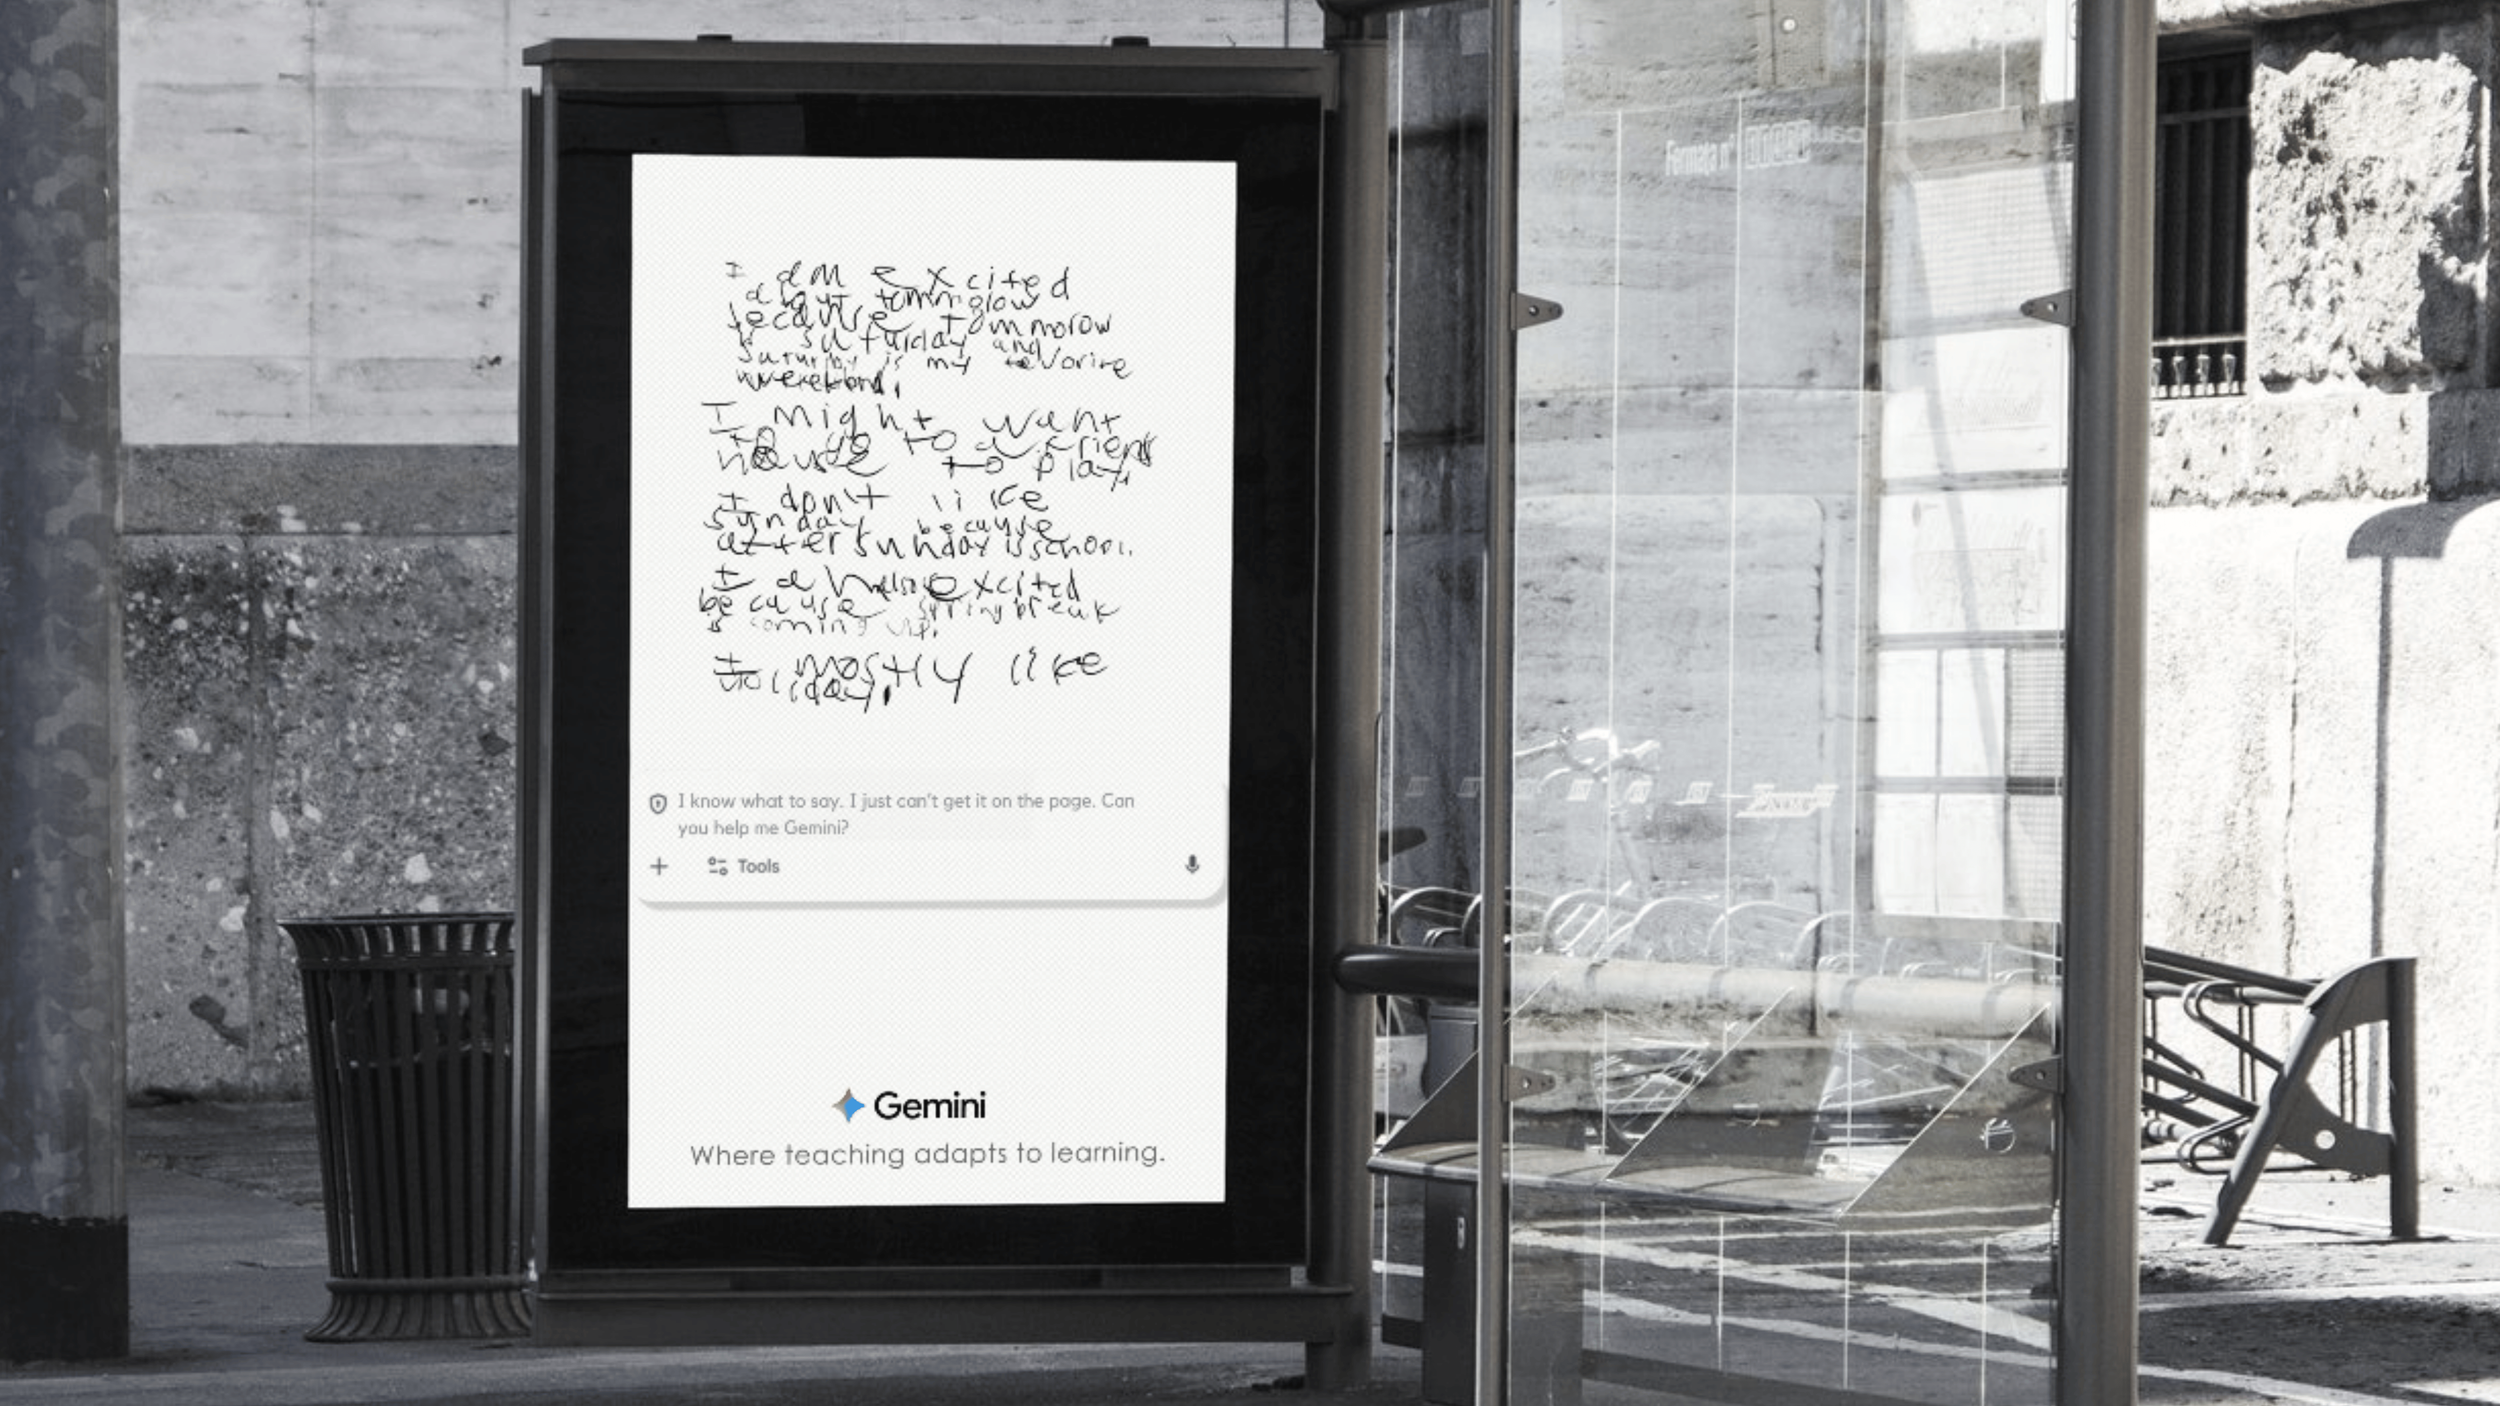 I am excited
about tommorow
because tommorow
is saturday and
saturday is my favorite
weekend.
I might want
to go to a friends
house to play.
I don't like
sunday because
after sunday is school.
I am also excited
because spring break
is coming up.
I mostly like
holidays.
I know what to say. I just can't get it on the page. Can
you help me Gemini?
Tools
Gemini
Where teaching adapts to learning.
Fermata n°